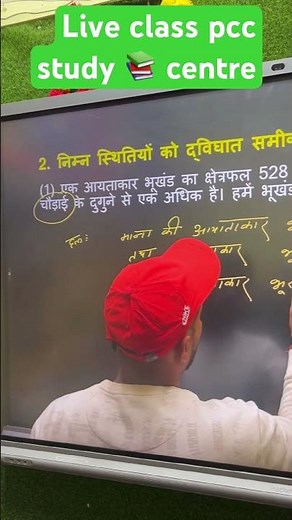 Live class pcc
study 📚 centre
2. निम्न स्थितियों को द्विघात समीक
(1) एक आयताकार भूखंड का क्षेत्रफल 528
चौड़ाई के दुगुने से एक अधिक है। हमें भूखंड
हल: माना की आयताकार
तथा